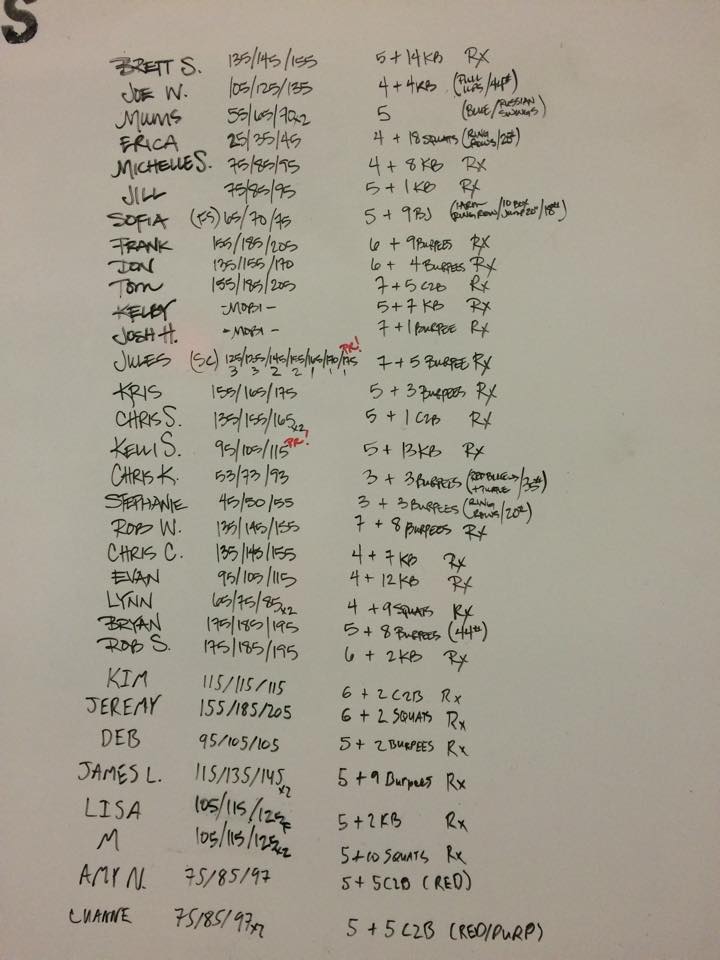 S
BRETT S. 135/145/155 5 + 14 KB Rx
JOE W. 105/125/135 4 + 4 KB (FULL /44#)
MUMS 55/65/70x2 5 (BLUE/RUSSIAN SWINGS)
ERICA 25/35/45 4 + 18 SQUATS (RING ROWS/20#)
MICHELLE S. 75/85/95 4 + 8 KB Rx
JILL 75/85/95 5 + 1 KB Rx
SOFIA (FS) 65/70/75 5 + 9 BJ (RING ROW/10 BOX JUMP 20"/18#)
FRANK 155/185/205 6 + 9 BURPEES Rx
DON 135/155/170 6 + 4 BURPEES Rx
TOM 155/185/205 7 + 5 C2B Rx
KELBY -MOBI- 5 + 7 KB Rx
JOSH H. -MOBI- 7 + 1 BURPEE Rx
JULES (SC) 125/135/145/155/165/170/175 PR! 7 + 5 BURPEE Rx
3 3 2 2 1 1 1
KRIS 155/165/175 5 + 3 BURPEES Rx
CHRIS S. 135/155/165x2 5 + 1 C2B Rx
KELLI S. 95/105/115 PR! 5 + 13 KB Rx
CHRIS K. 53/73/93 3 + 3 BURPEES (RED /35#)
STEPHANIE 45/50/55 3 + 3 BURPEES (RING ROWS/20#)
ROB W. 135/145/155 7 + 8 BURPEES Rx
CHRIS C. 135/145/155 4 + 7 KB Rx
EVAN 95/105/115 4 + 12 KB Rx
LYNN 65/75/85x2 4 + 9 SQUATS Rx
BRYAN 175/185/195 5 + 8 BURPEES (44#)
ROB S. 175/185/195 6 + 2 KB Rx
KIM 115/115/115 6 + 2 C2B Rx
JEREMY 155/185/205 6 + 2 SQUATS Rx
DEB 95/105/105 5 + 2 BURPEES Rx
JAMES L. 115/135/145x2 5 + 9 Burpees Rx
LISA 105/115/125 5 + 2 KB Rx
M 105/115/125x2 5 + 10 SQUATS Rx
AMY N. 75/85/97 5 + 5 C2B (RED)
LUANNE 75/85/97x2 5 + 5 C2B (RED/PURP)